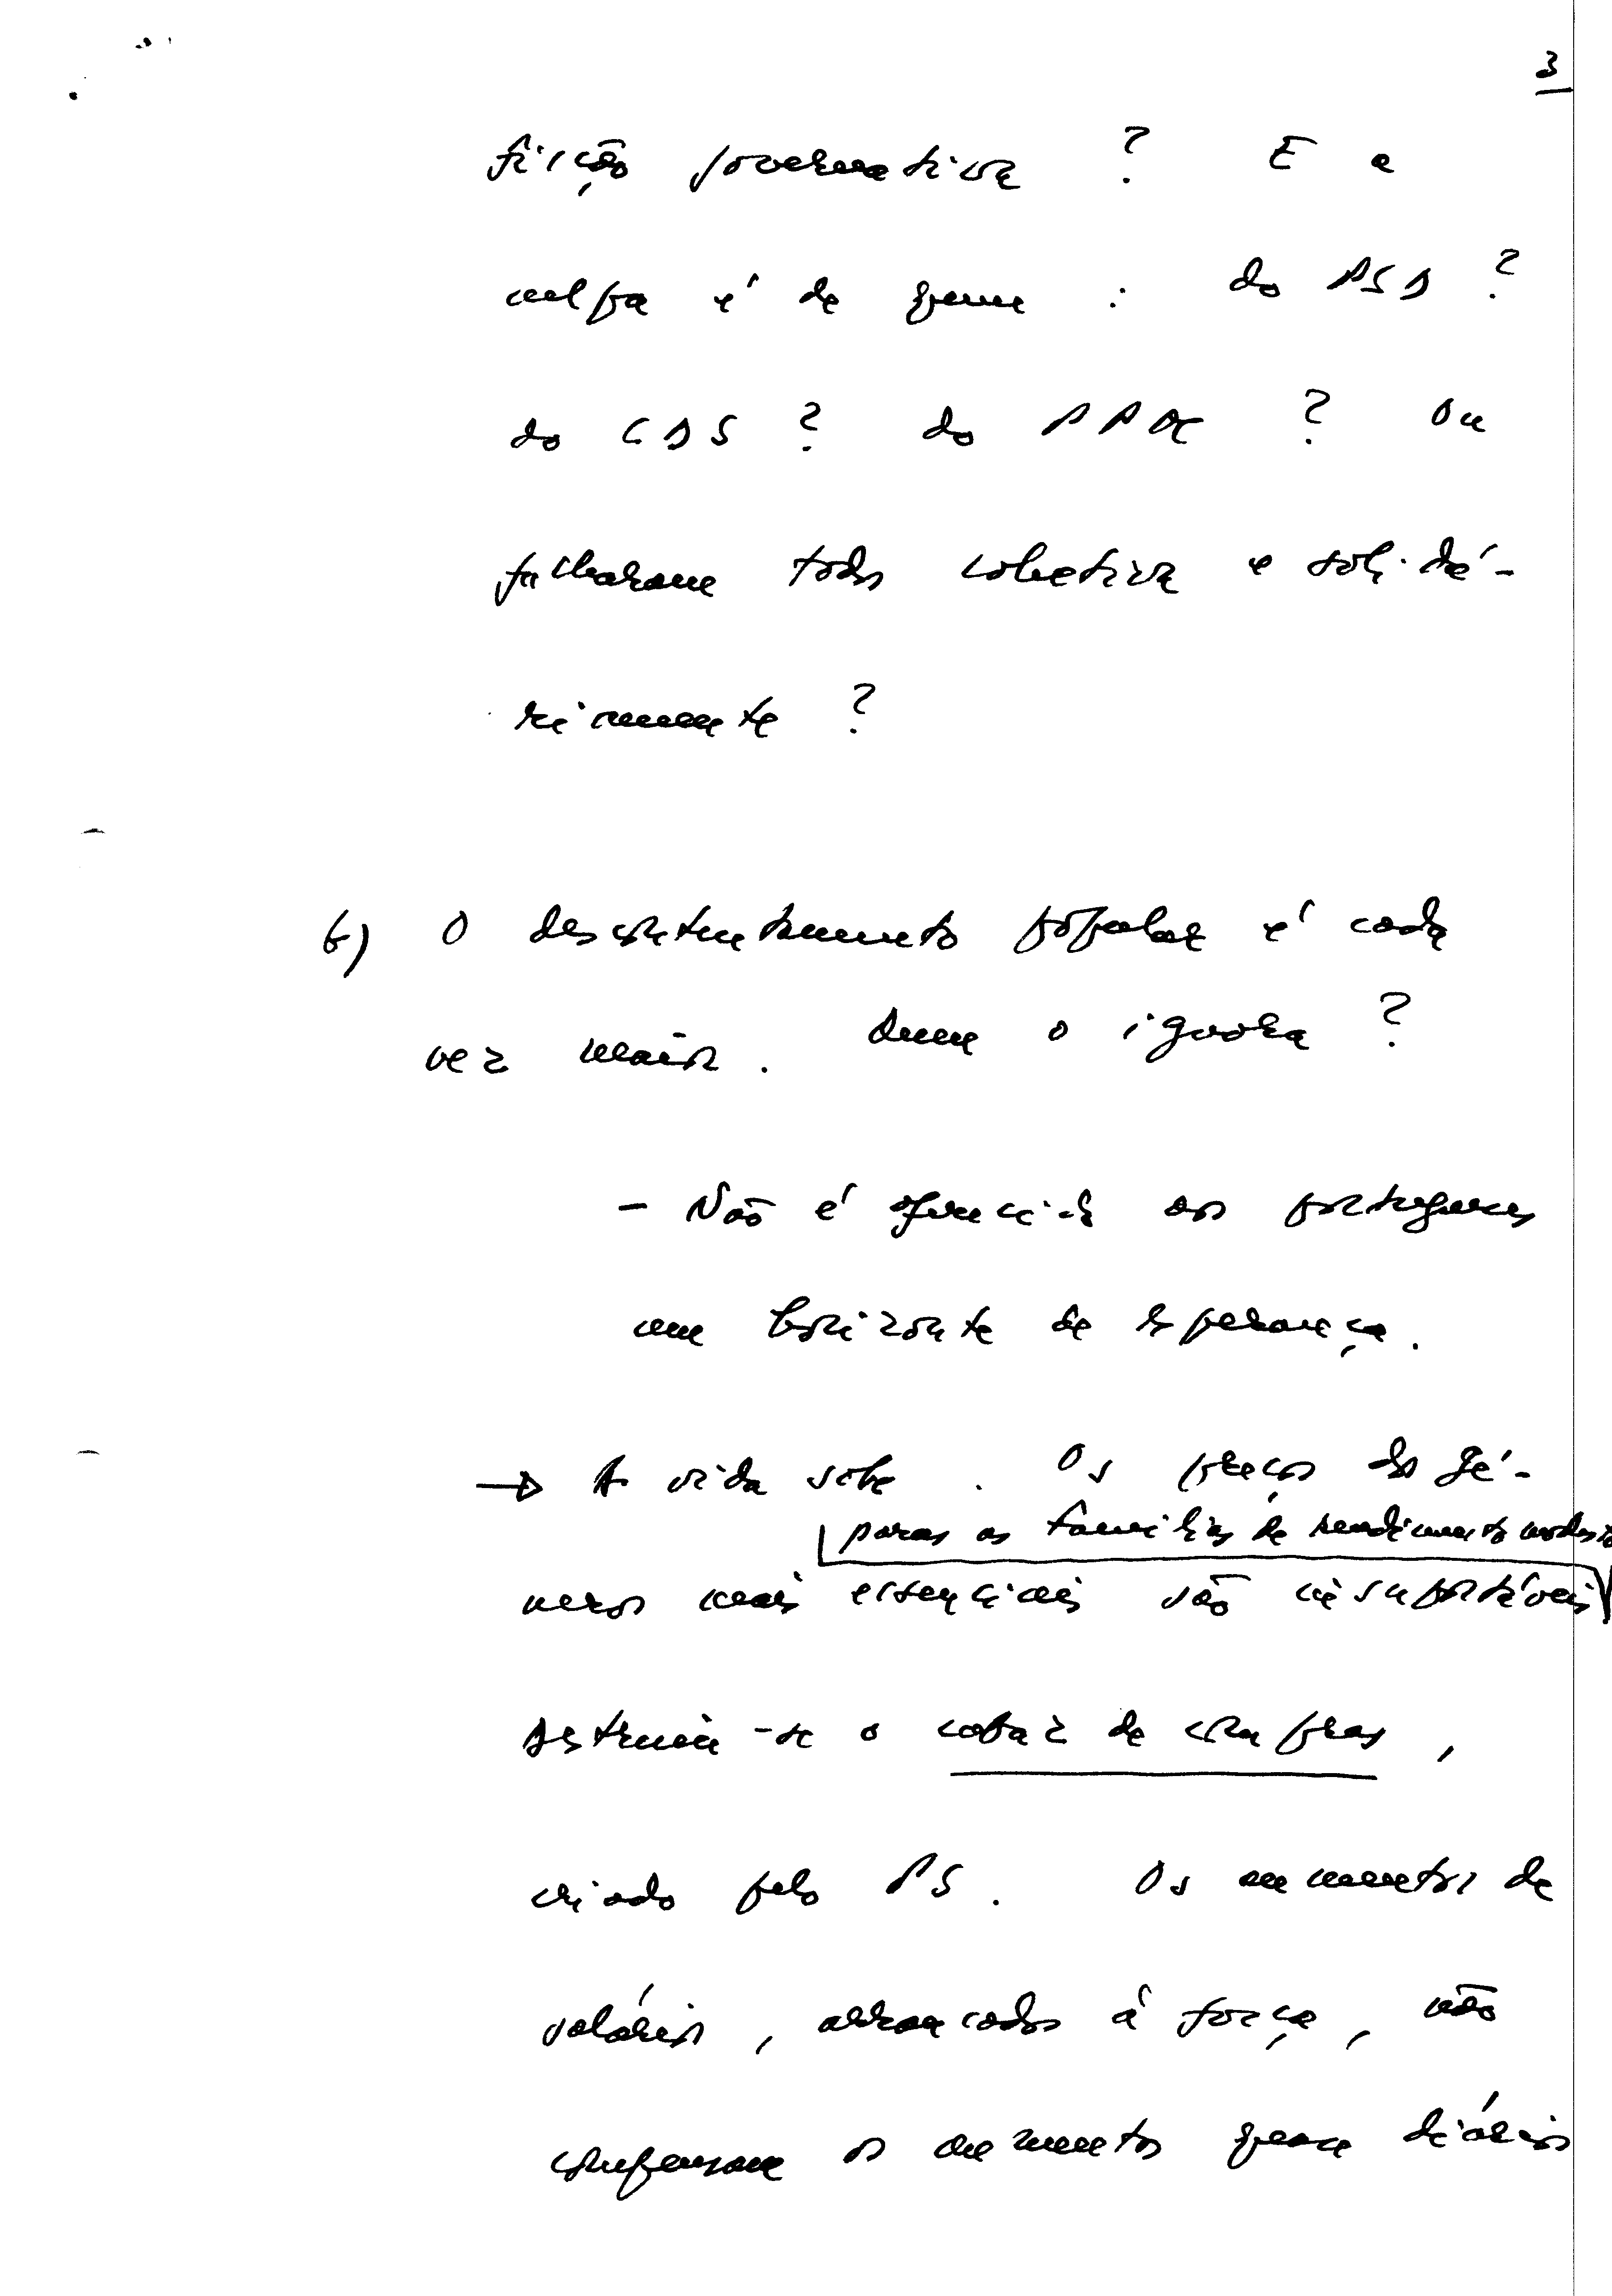 3
ficção governativa ? E a
culpa é de quem : do PSD ?
do CDS ? do PPM ? Ou
falharam todos colectiva e solidá-
riamente ?
b) O descontentamento popular é cada
vez mais. Quem o ignora ?
- Não é oferecido aos portugueses
um horizonte de esperança.
→ A vida sobe . Os preços dos gé-
para as famílias de rendimento modesto
neros mais essenciais são insuportáveis
Destruiu-se o cabaz de compras ,
criado pelo PS . Os aumentos de
salários , arrancados à força , não
compensam os aumentos quase diários